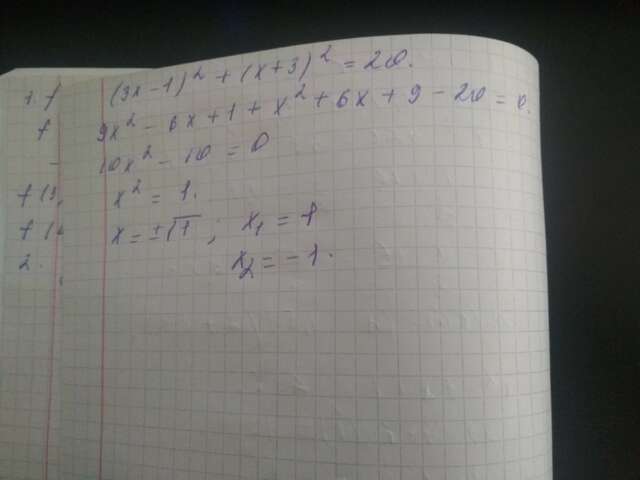 (3x-1)² + (x+3)² = 20.
9x² - 6x + 1 + x² + 6x + 9 - 20 = 0.
10x² - 10 = 0
x² = 1.
x = ±√1 ; x₁ = 1
x₂ = -1.